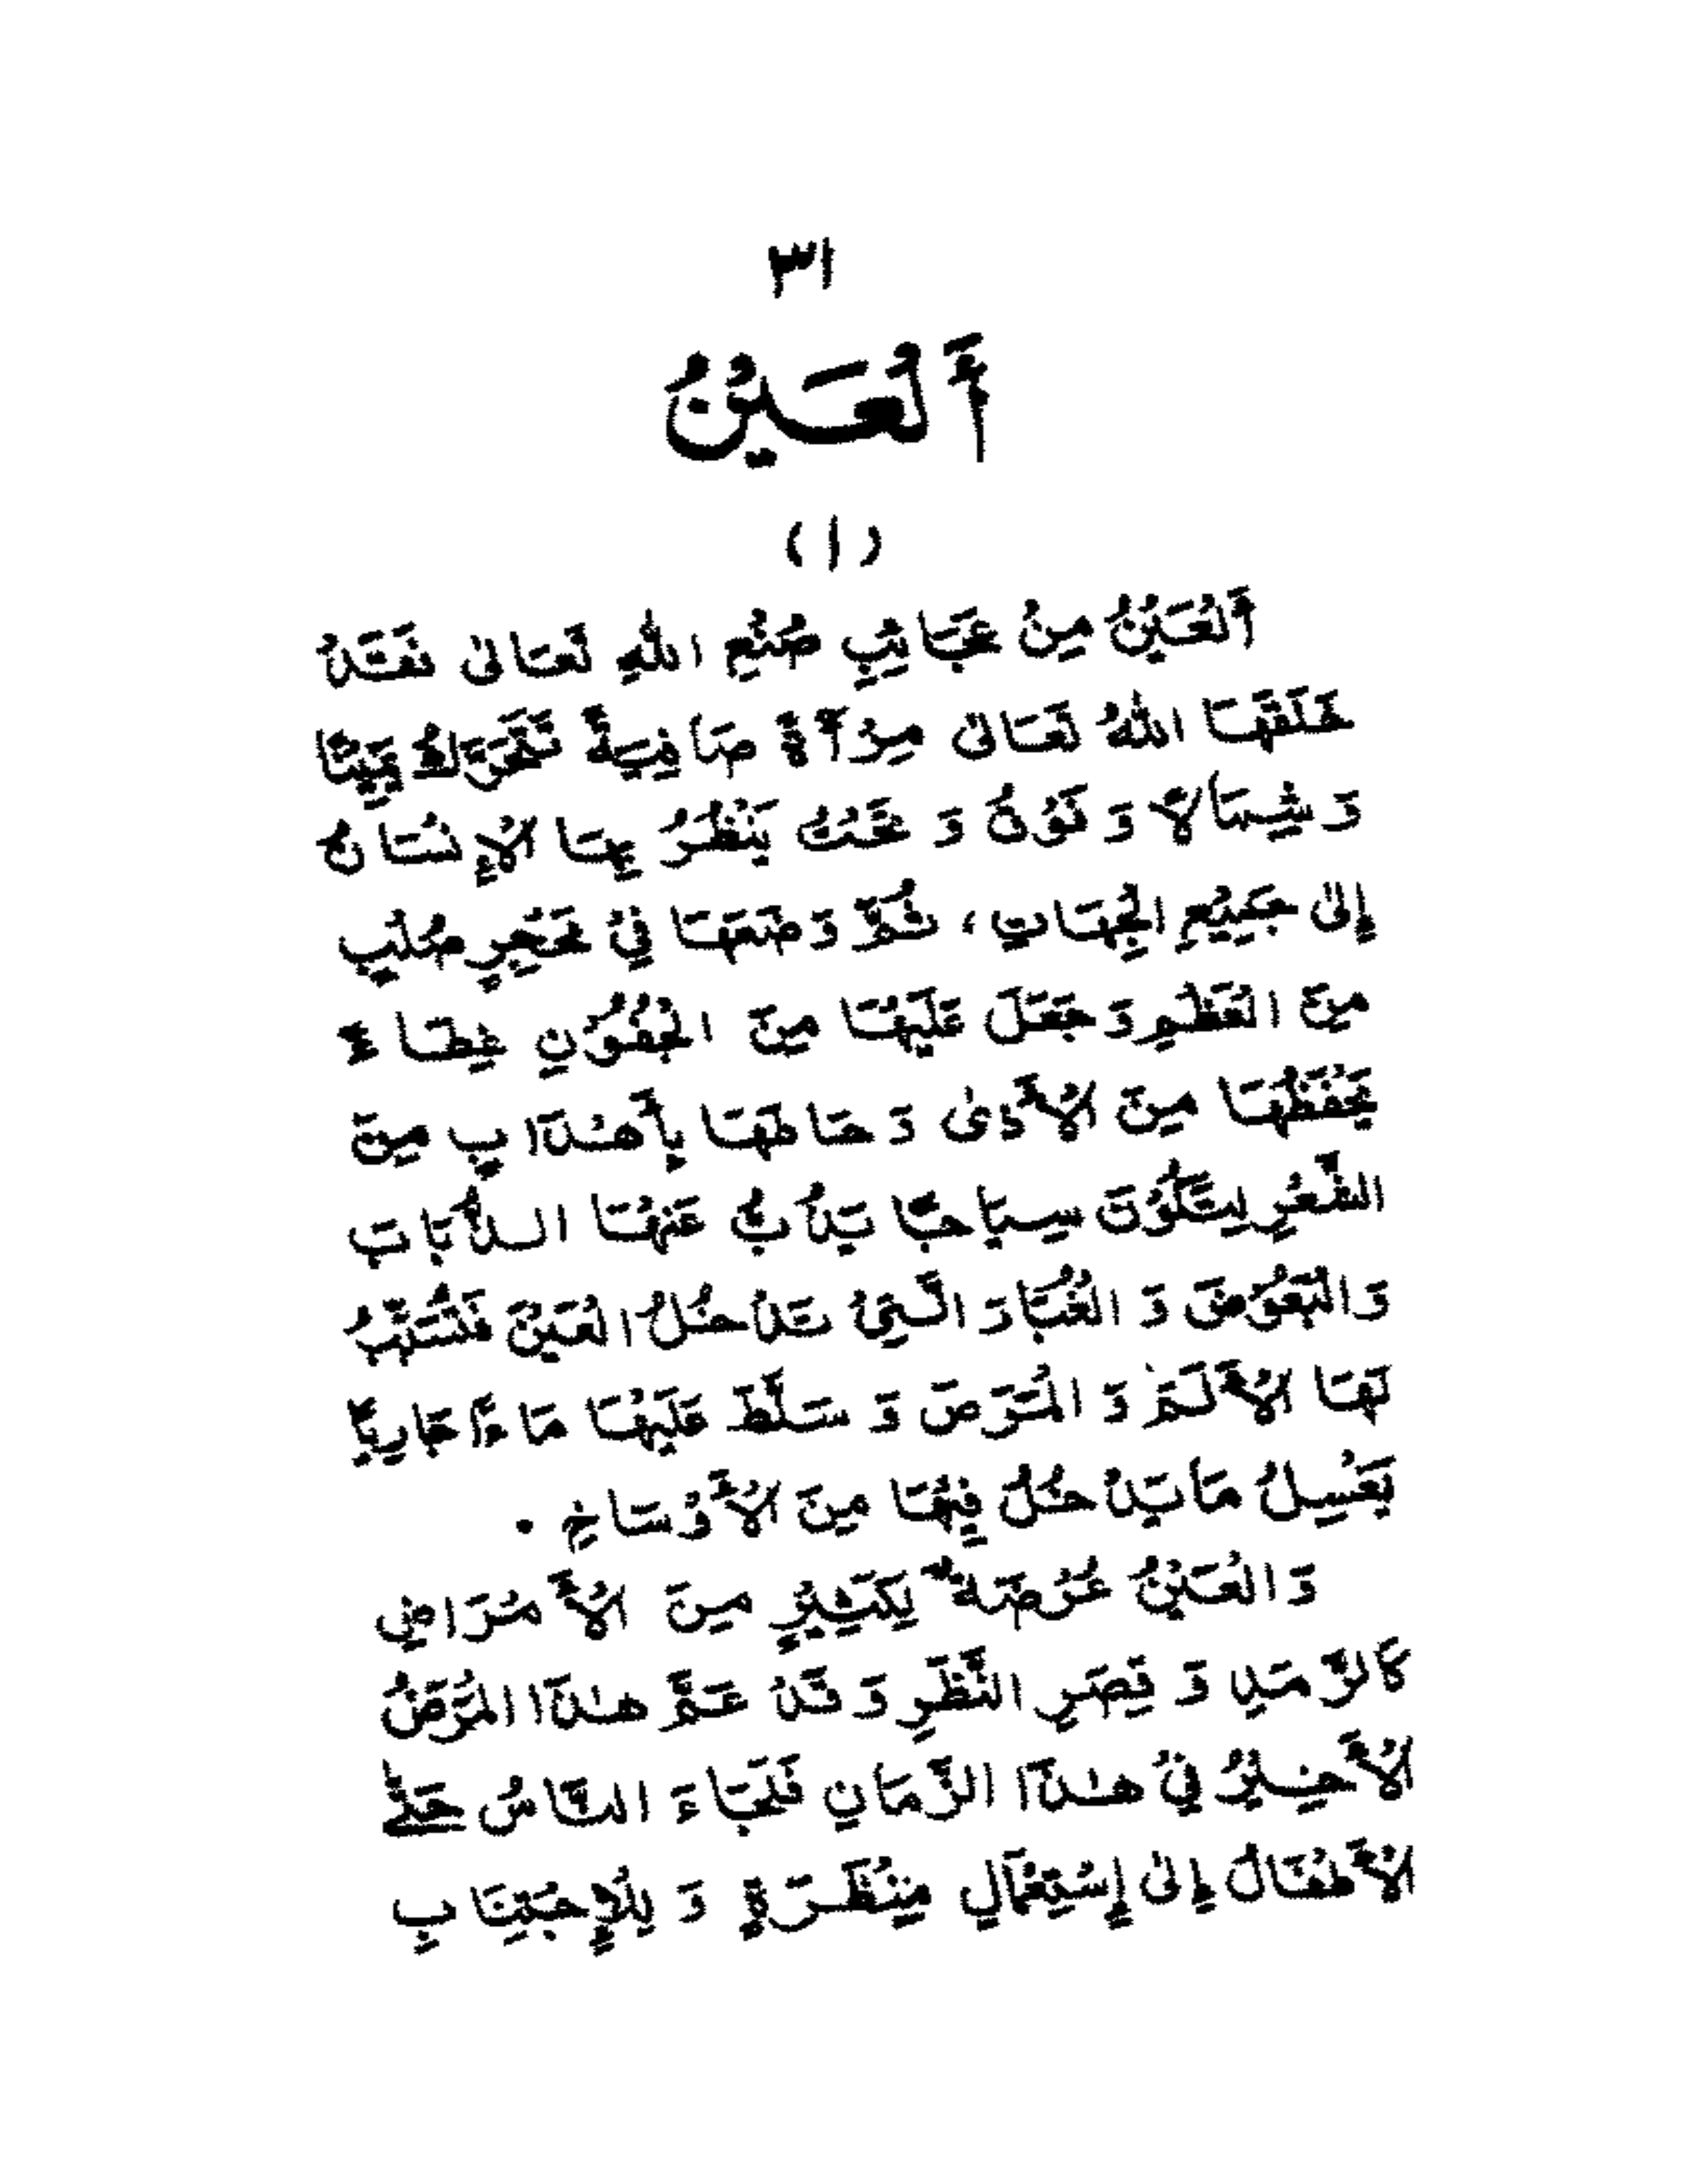 ٣١
أَلْعَيْنُ
(١)
أَلْعَيْنُ مِنْ عَجَائِبِ صُنْعِ اللهِ تَعَالىٰ فَقَدْ
خَلَقَهَا اللهُ تَعَالىٰ مِرْآةً صَافِيَةً تَتَحَرَّكُ يَمِيْنًا
وَ شِمَالاً وَ فَوْقُ وَ تَحْتُ يَنْظُرُ بِهَا الْإِنْسَانُ
إِلىٰ جَمِيْعِ الْجِهَاتِ، ثُمَّ وَضَعَهَا فِيْ مَحْجِرٍ صُلْبٍ
مِنَ الْعَظْمِ وَ جَعَلَ عَلَيْهَا مِنَ الْجُفُوْنِ غِطَاءً
يَحْفَظُهَا مِنَ الْأَذىٰ وَ حَاطَهَا بِأَهْدَابٍ مِنَ
الشَّعْرِ لِتَكُوْنَ سِيَاجًا يَذُبُّ عَنْهَا الذُّبَابَ
وَ الْبَعُوْضَ وَ الْغُبَارَ الَّتِيْ تَدْخُلُ الْعَيْنَ فَتُسَبِّبُ
لَهَا الْأَلَمَ وَ الْمَرَضَ وَ سَلَّطَ عَلَيْهَا مَاءً جَارِيًا
يَغْسِلُ مَا يَدْخُلُ فِيْهَا مِنَ الْأَوْسَاخِ .
وَ الْعَيْنُ عُرْضَةٌ لِكَثِيْرٍ مِنَ الْأَمْرَاضِ
كَالرَّمَدِ وَ قِصَرِ النَّظَرِ وَ قَدْ عَمَّ هٰذَا الْمَرَضُ
الْأَخِيْرُ فِيْ هٰذَا الزَّمَانِ فَلَجَاءَ النَّاسُ حَتّٰى
الْأَطْفَالُ إِلىٰ إِسْتِعْمَالِ مِنْظَرَةٍ وَ لِلْإِجْتِنَابِ